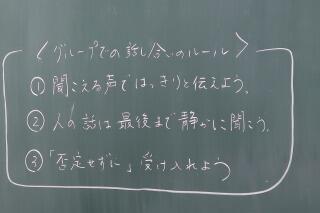 〈グループでの話し合いのルール〉
① 聞こえる声ではっきりと伝えよう。
② 人の話は最後まで静かに聞こう。
③ 「否定せずに」受け入れよう